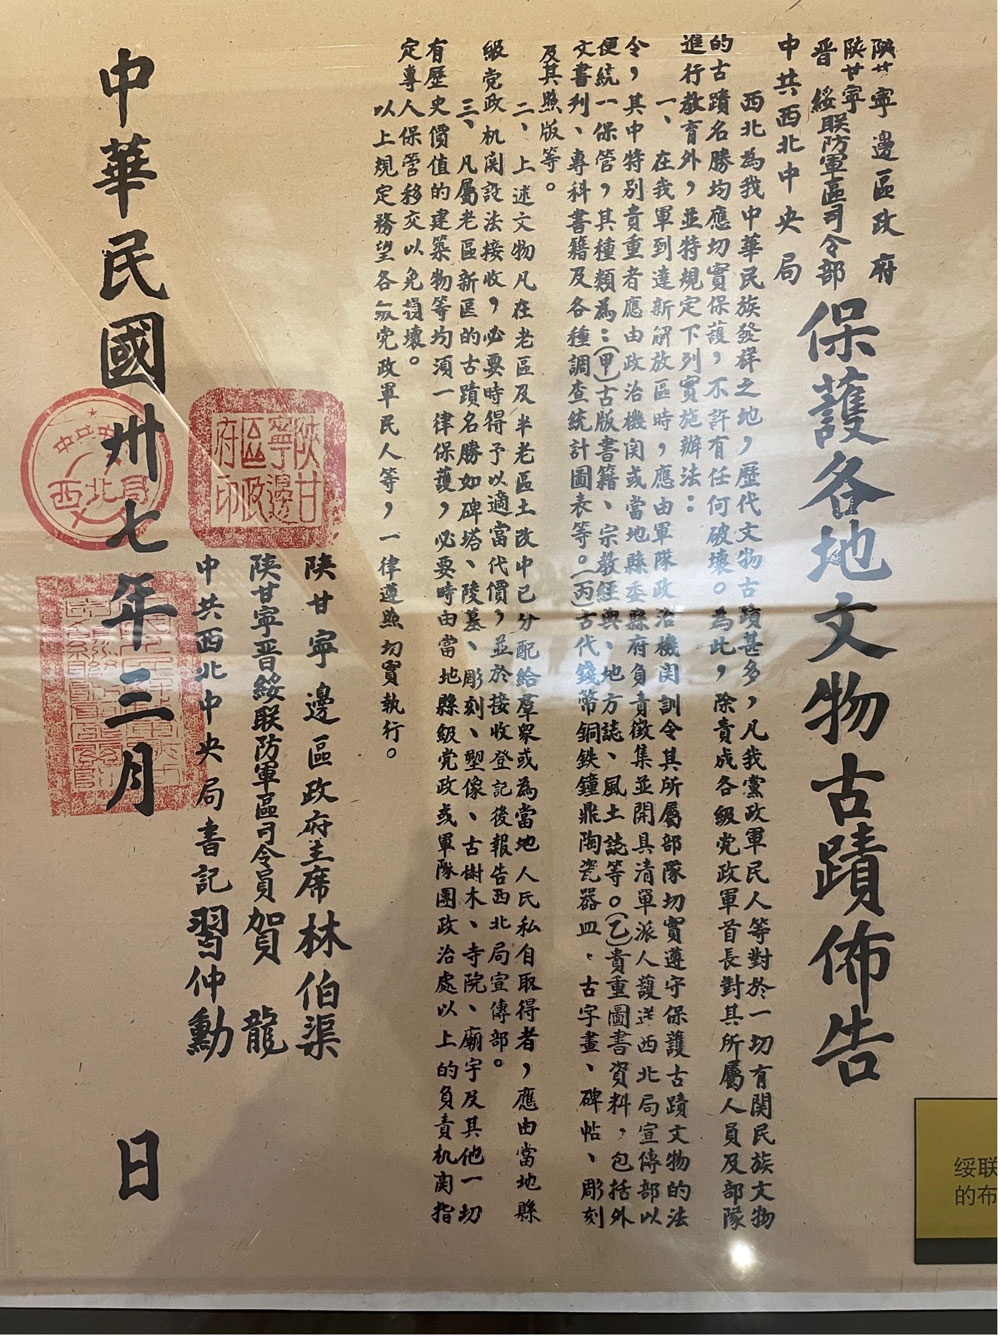 陝甘寧邊區政府
陝甘寧
晋綏联防軍區司令部
中共西北中央局
保護各地文物古蹟佈告
西北為我中華民族發祥之地，歷代文物古蹟甚多，凡我黨政軍民人等對於一切有関民族文物
的古蹟名勝均應切實保護，不許有任何破壞。為此，除責成各級党政軍首長對其所屬人員及部隊
進行教育外，並特規定下列實施辦法：
一、在我軍到達新解放區時，應由軍隊政治機関訓令其所屬部隊切實遵守保護古蹟文物的法
令，其中特別貴重者應由政治機関或當地縣委縣府負責徵集並開具清單派人護送西北局宣傳部以
便統一保管，其種類為：(甲)古版書籍、宗教經典、地方誌、風土誌等。(乙)貴重圖書資料，包括外
文書刋、專科書籍及各種調查統計圖表等。(丙)古代錢幣銅鉄鐘鼎陶瓷器皿、古字畫、碑帖、彫刻
及其照版等。
二、上述文物凡在老區及半老區土改中已分配給羣眾或為當地人民私自取得者，應由當地縣
級党政机関設法接收，必要時得予以適當代價，並於接收登記後報告西北局宣傳部。
三、凡屬老區新區的古蹟名勝如碑塔、陵墓、彫刻、塑像、古樹木、寺院、廟宇及其他一切
有歷史價值的建築物等均須一律保護，必要時由當地縣級党政或軍隊團政治處以上的負責机関指
定專人保管移交以免損壞。
以上規定務望各級党政軍民人等，一律遵照切實執行。
陝甘寧邊區政府主席林伯渠
陝甘寧晋綏联防軍區司令員賀龍
中共西北中央局書記習仲勳
中華民國卅七年三月 日
陝甘
寧邊
區政
府印
中共中央
西北局
绥联
的布